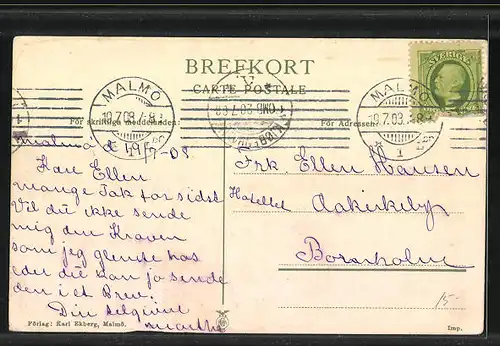 BREFKORT
CARTE POSTALE
SVERIGE
MALMÖ
MALMÖ
För skriftliga meddelanden:
För Adressen:
Malmø d 19/7-08
Frk Ellen Hansen
Kære Ellen
mange Tak for sidst
Hotellet Aakirkeby
Vil du ikke sende
mig den Kraven
Bornholm
som jeg glemte hos
eder du kan jo sende
den i et Brev.
Din hengivne
Marthe
15-
Förlag: Karl Ekberg, Malmö.
Imp.